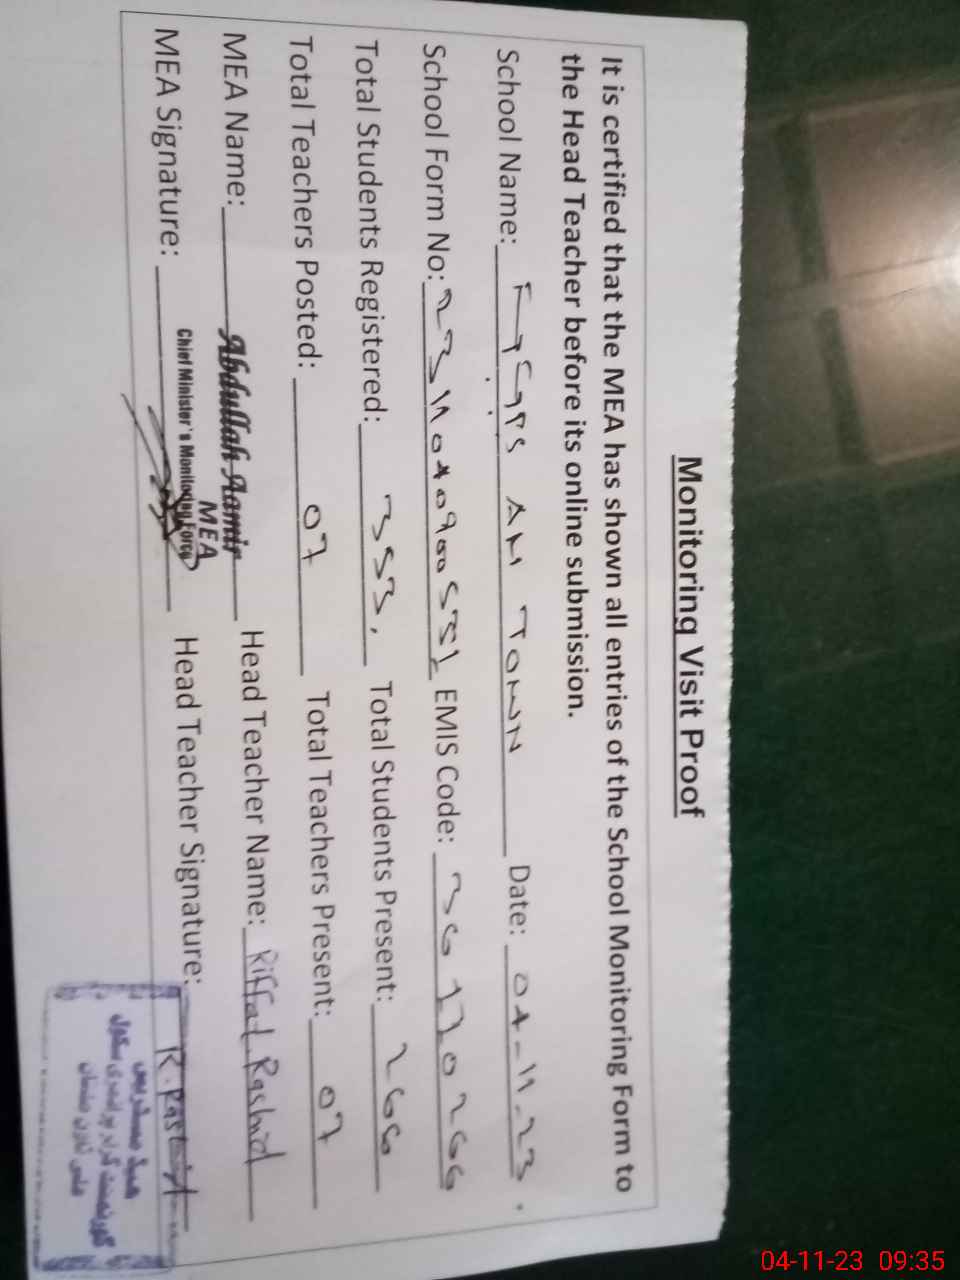 Monitoring Visit Proof
It is certified that the MEA has shown all entries of the School Monitoring Form to
the Head Teacher before its online submission.
School Name: TOWN Date: 04-11-23.
School Form No: EMIS Code:
Total Students Registered: 353, Total Students Present: 266
Total Teachers Posted: 07 Total Teachers Present: 07
MEA Name: Abdullah Aamir Head Teacher Name: Riffat Rashid
MEA
Chief Minister's Monitoring Force
MEA Signature: Head Teacher Signature: R.Rashid
ہیڈ مسٹریس
گورنمنٹ گرلز پرائمری سکول
ٹاؤن ملتان
04-11-23 09:35